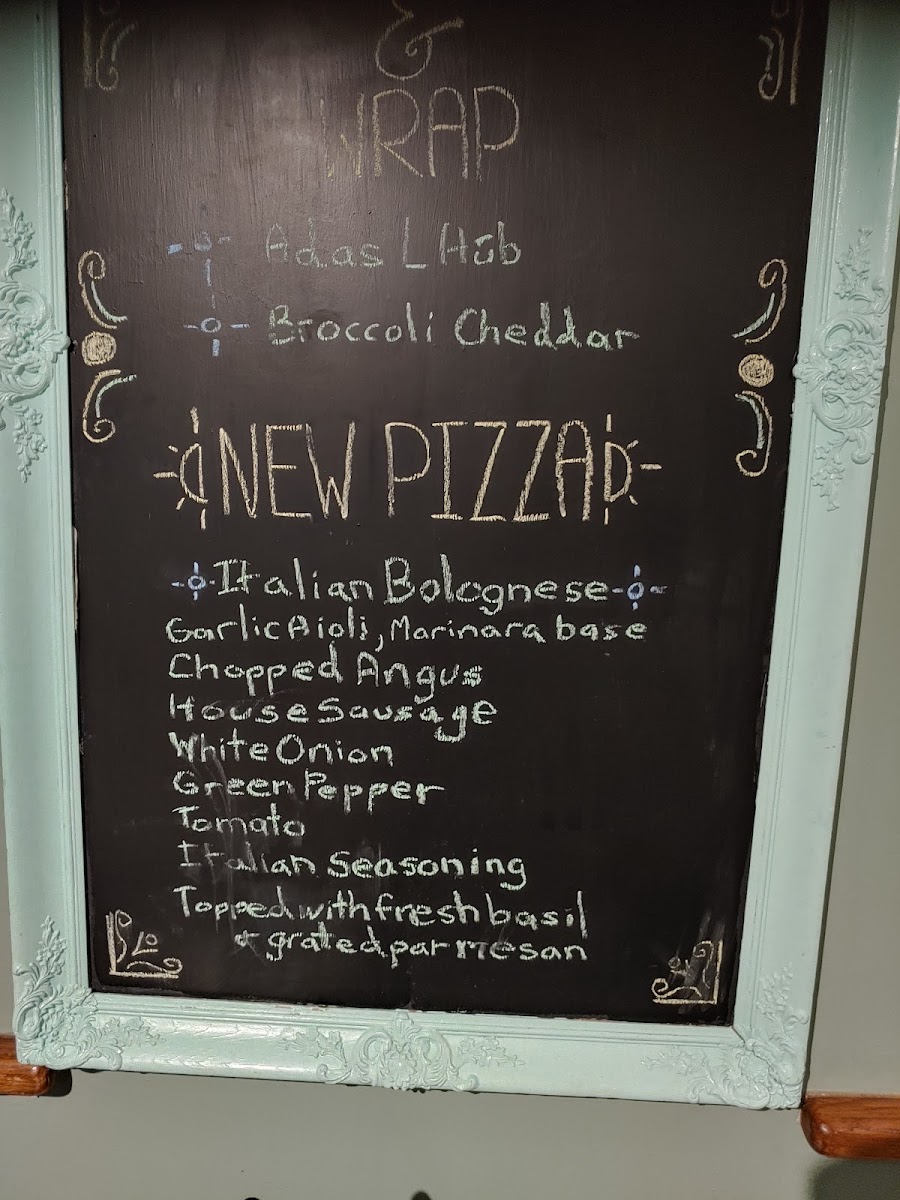 &
WRAP
Adas L Hub
Broccoli Cheddar
NEW PIZZA
Italian Bolognese
Garlic Aioli, Marinara base
Chopped Angus
House Sausage
White Onion
Green Pepper
Tomato
Italian Seasoning
Topped with fresh basil
& grated parmesan